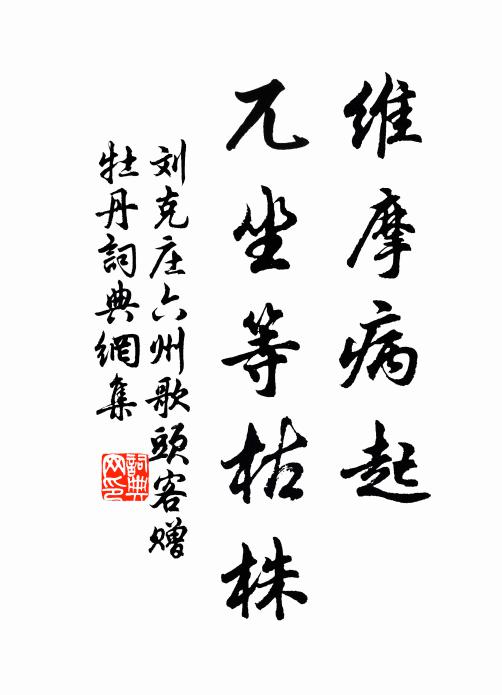 維摩病起
兀坐等枯株
刘克庄六州歌頭客赠
牡丹詞典網集
詞典
网印